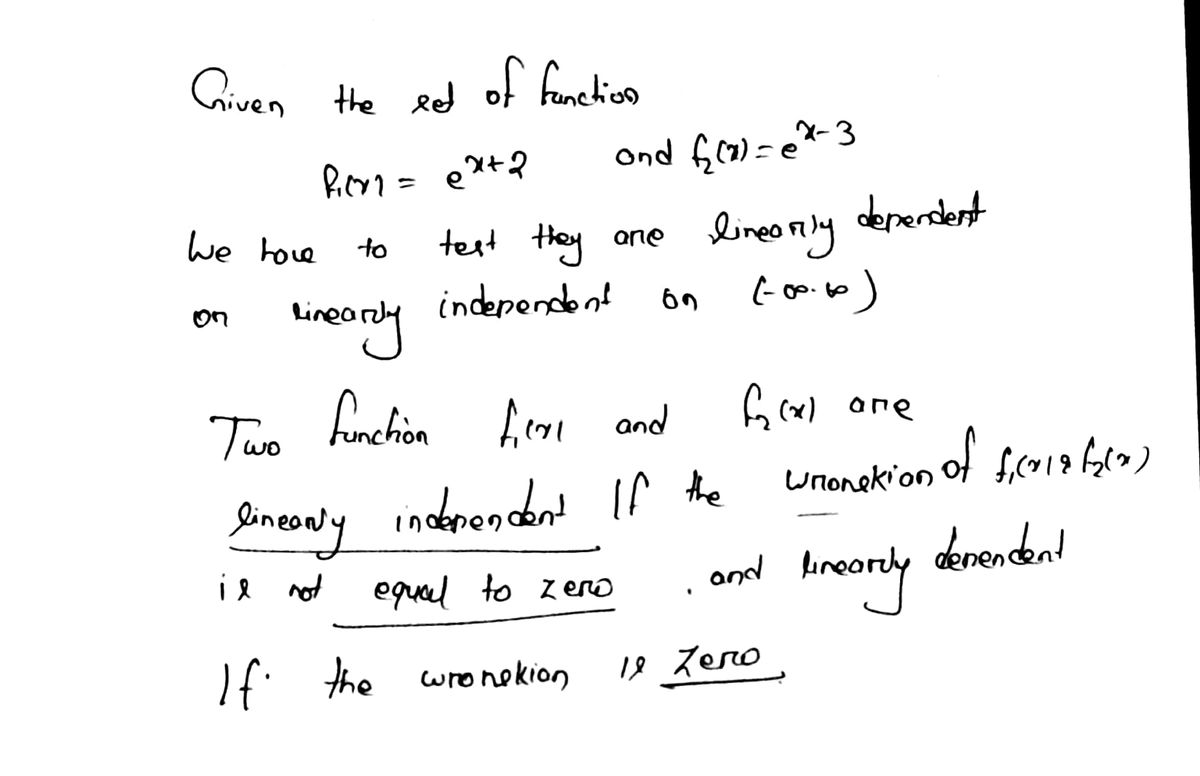 Given the set of function
f₁(x) = e^{x+2} and f₂(x) = e^{x-3}
We have to test they are linearly dependent
or linearly independent on (-∞.∞)
Two function f₁(x) and f₂(x) are
linearly independent If the wronskion of f₁(x) & f₂(x)
is not equal to zero . and linearly dependent
If the wronskion is Zero